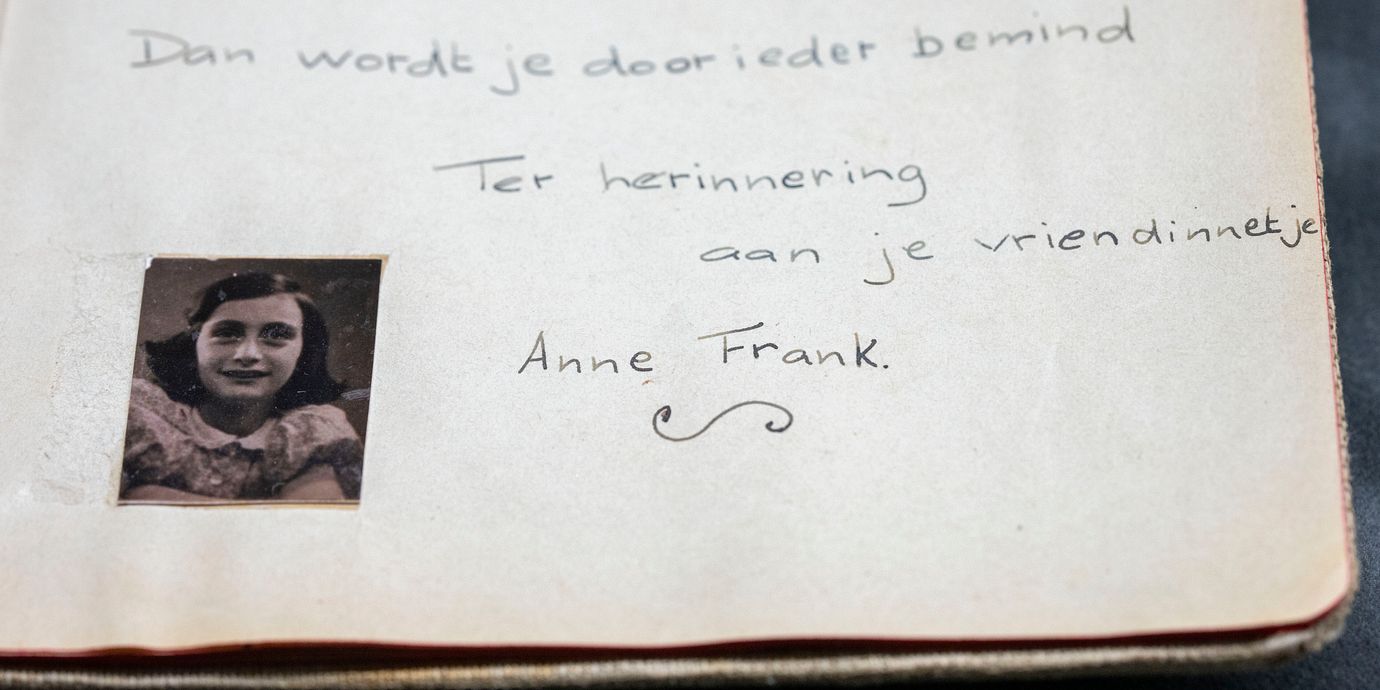 Dan wordt je door ieder bemind
Ter herinnering
aan je vriendinnetje
Anne Frank.